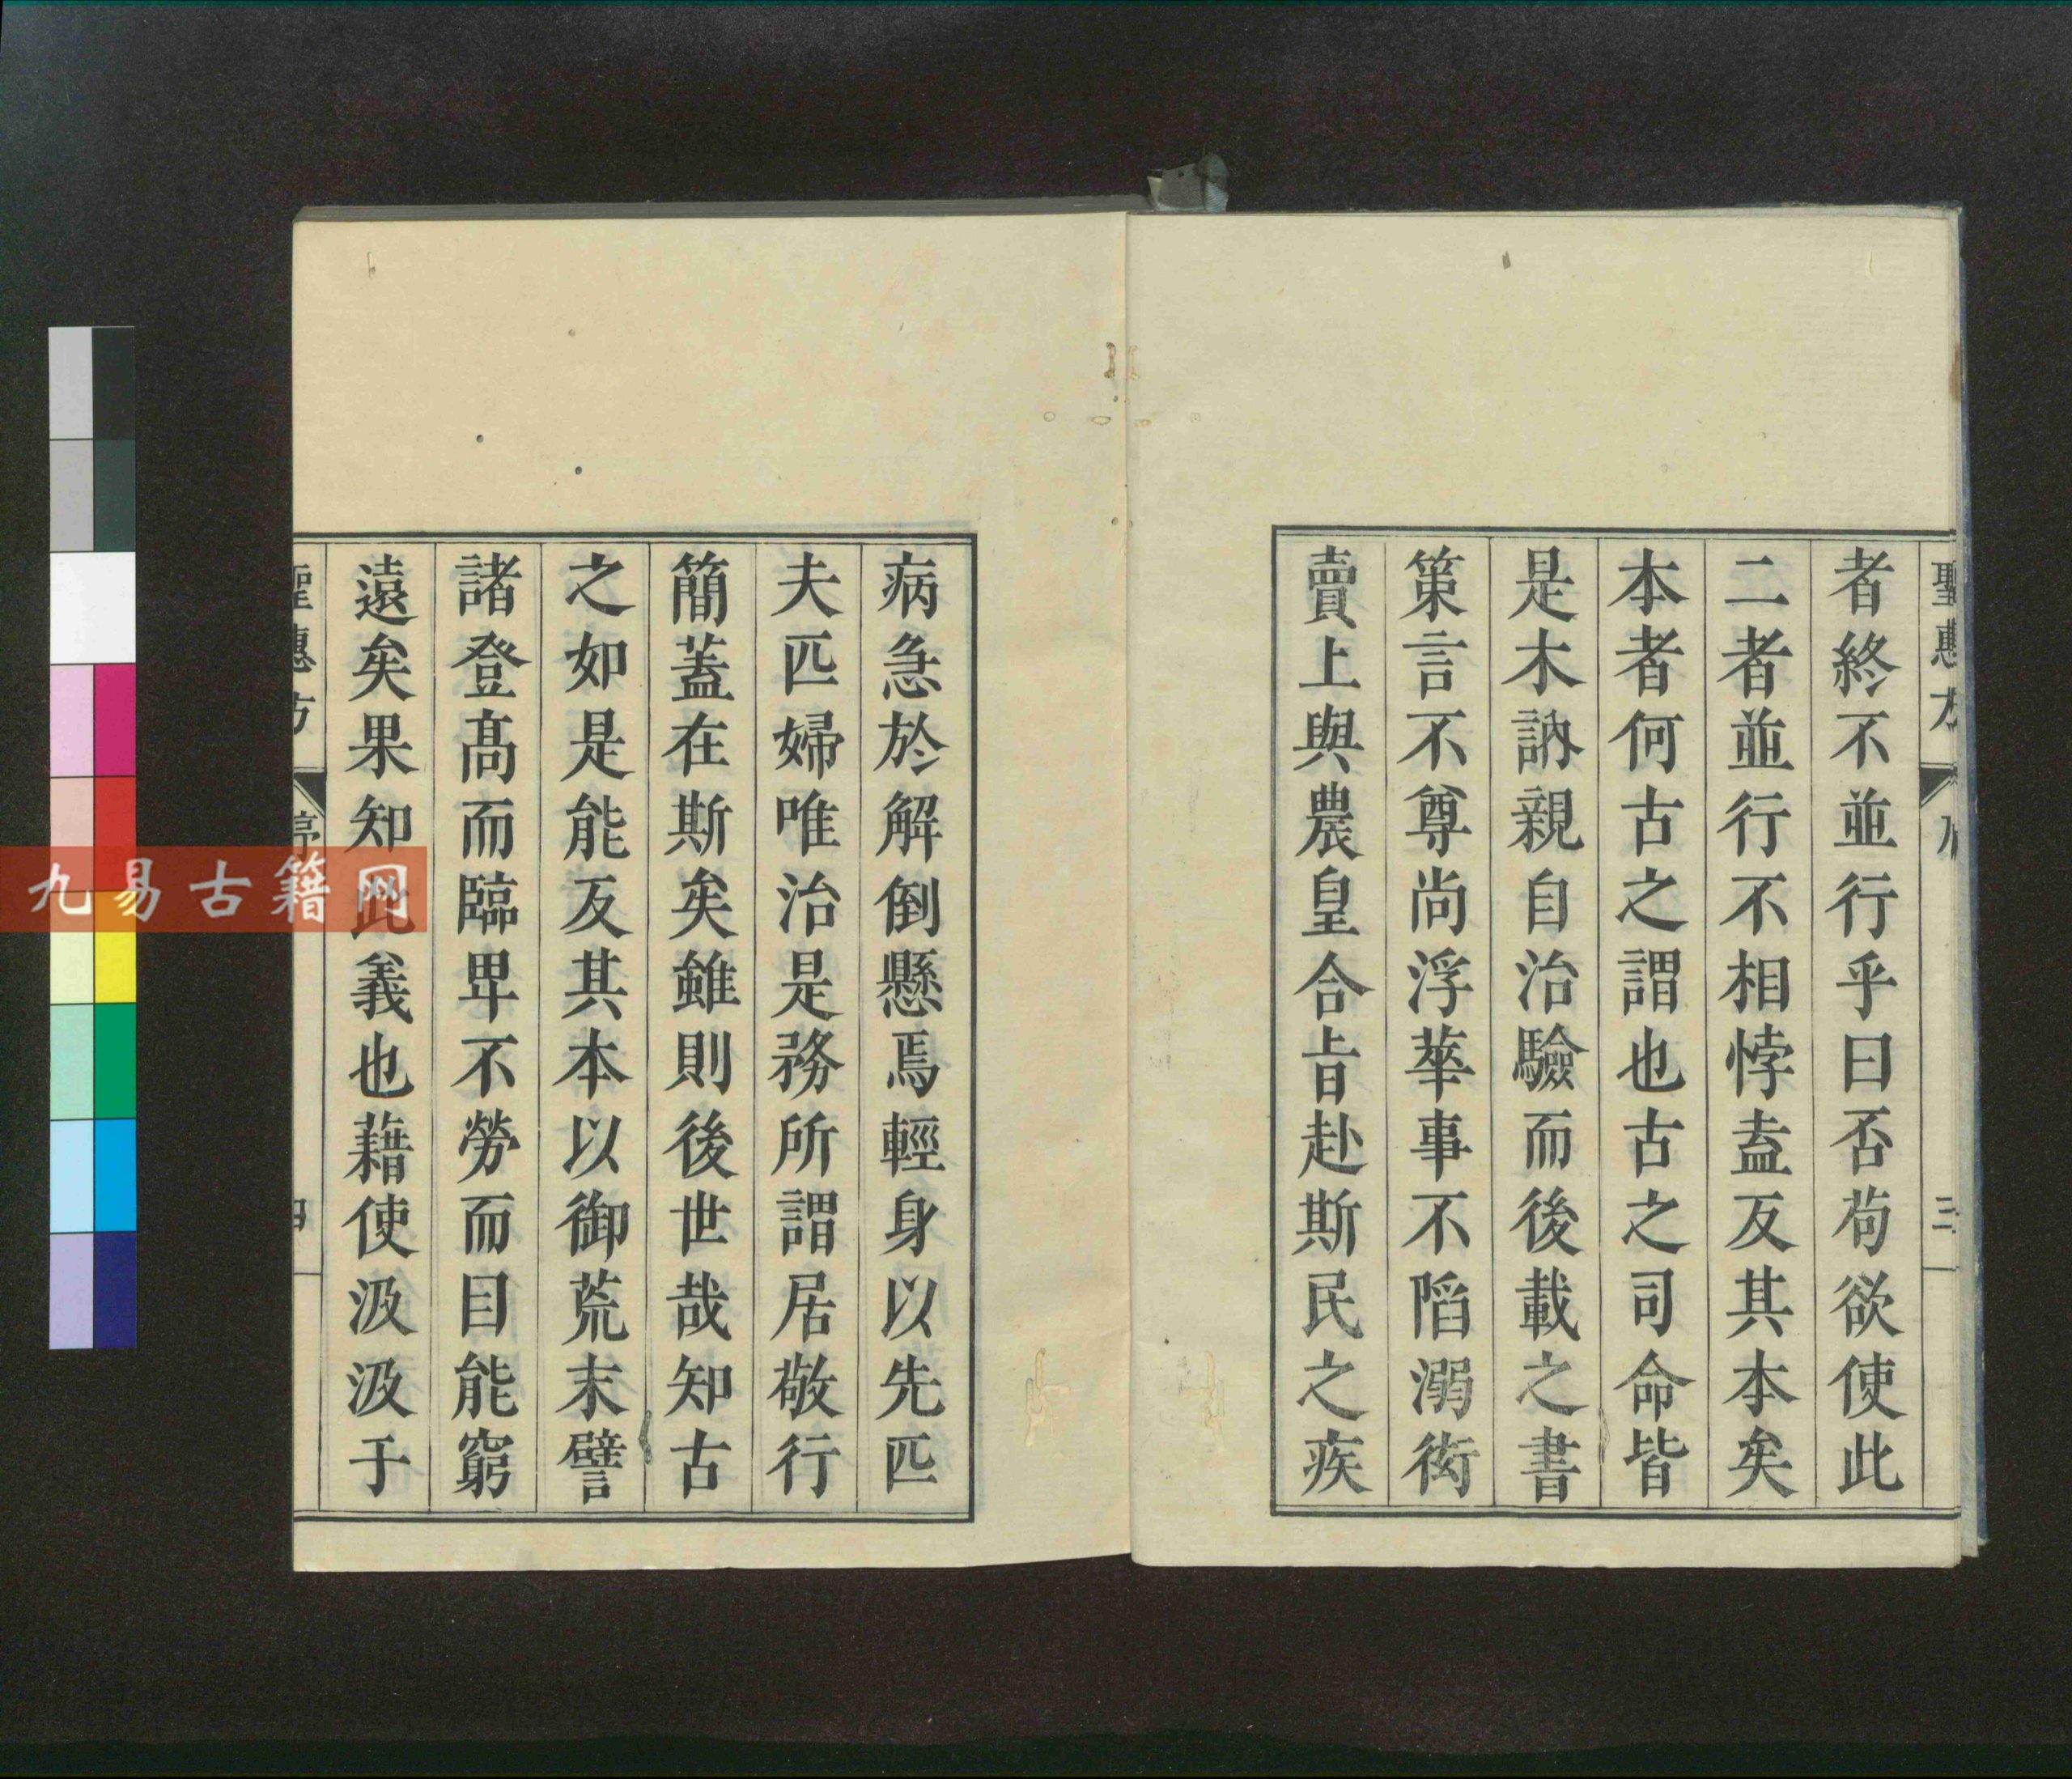 聖惠方
三
者終不並行乎曰否苟欲使此
二者並行不相悖盍反其本矣
本者何古之謂也古之司命皆
是木訥親自治驗而後載之書
策言不尊尚浮華事不陷溺衒
賣上與農皇合旨赴斯民之疾
病急於解倒懸焉輕身以先匹
夫匹婦唯治是務所謂居敬行
簡蓋在斯矣雖則後世哉知古
之如是能反其本以御荒末譬
諸登髙而臨卑不勞而目能窮
遠矣果知此義也藉使汲汲于
聖惠方
序
四
九易古籍网